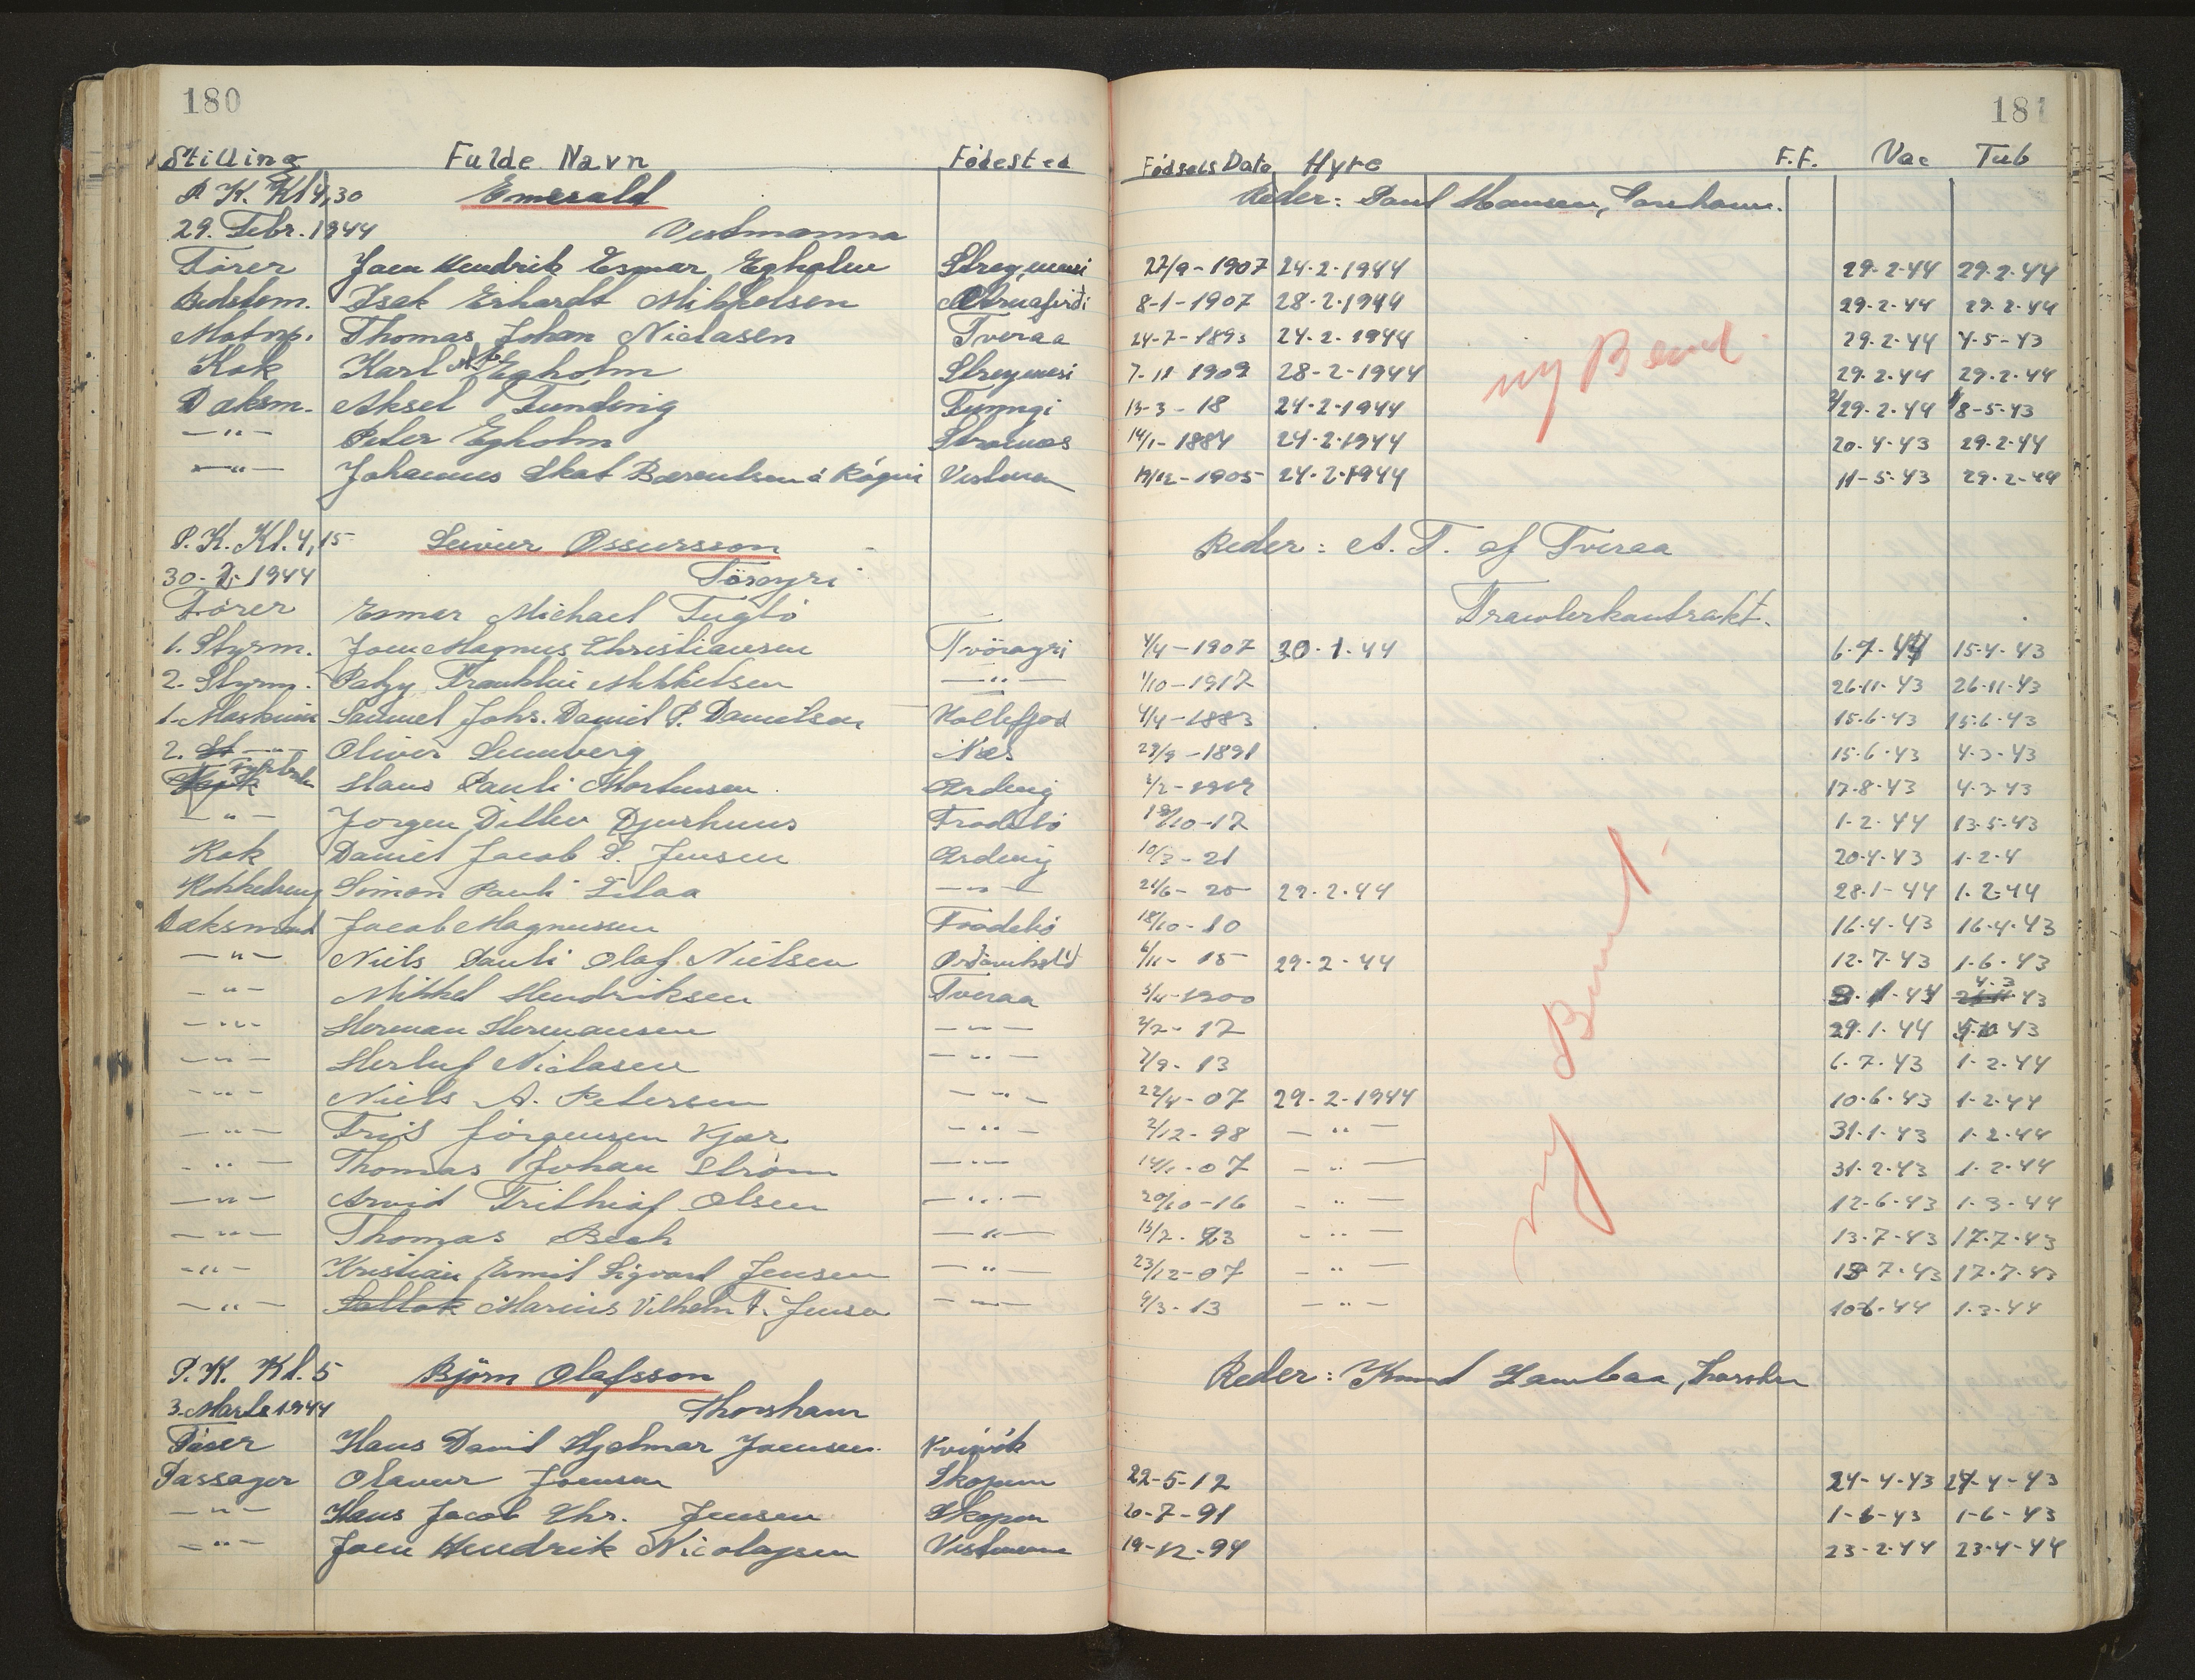 180
Stilling Fulde Navn Fødested
P. K. Kl 4,30 Emerald
29. Febr. 1944 Vestmanna
Fører Joen Hendrik Esmar Egholm
Bedstem. Isak Erhardt Mikkelsen
Motorp. Thomas Johan Niclasen Tveraa
Kok Karl Egholm
Dæksm. Aksel Funding Funningi
—"— Peter Egholm
—"— Johannus Skat Berentsen á Rógvi Vestman
P. K. Kl. 4,15 Leivur Ossursson
30-2-1944 Föroyri
Fører Esmar Michael Fuglö
1. Styrm. Joen Magnus Christiansen Tvöroyri
2. Styrm. Patzy Franklin Mikkelsen —"—
1. Maskinm Samuel Johs. Daniel P. Danielsen
2. —"— Oliver Lumberg Næs
Fyrbøder Hans Pauli Mortensen Ordevig
—"— Jørgen Ditlev Djurhuus Frodebö
Kok Daniel Jacob S. Jensen Ordevig
Simon Pauli —"—
Dæksmand Jacob Magnussen Froodebö
—"— Niels Pauli Olaf Nielsen
—"— Mikkel Hendriksen Tveraa
—"— Herman Hermansen —"—
—"— Herluf Niclasen —"—
—"— Niels A. Petersen —"—
—"— Friis Jörgensen Kjær —"—
—"— Thomas Johan Strøm —"—
—"— Arvid Frithiof Olsen —"—
—"— Thomas Bech —"—
—"— Kristian Emil Sigvard Jensen —"—
—"— Marius Vilhelm F. Jensen —"—
P. K. Kl. 5 Björn Olafsson
3. Marts 1944 Thorshavn
Fører Hans David Hjalmar Joensen Kvívík
Passager Olavur Joensen Skopun
—"— Hans Jacob Chr. Jensen Skopun
—"— Joen Hendrik Nicolajsen Vestmanna
181
Fødsels Dato Hyre F.F. Vac Tub
Reder: Poul Hansen, Torshavn.
27/9-1907 24-2-1944 29-2-44 29-2-44
8-1-1907 28-2-1944 29-2-44 29-2-44
24-7-1893 24-2-1944 29-2-44 4-5-43
7-11 1909 28-2-1944 29-2-44 29-2-44
13-3-18 24-2-1944 29-2-44 8-5-43
14/1-1884 24-2-1944 20-4-43 29-2-44
19/12-1905 24-2-1944 11-5-43 29-2-44
ny Bemd.
Reder: A. T. af Tveraa
Trawlerkontrakt.
4/4-1907 30-1-44 6-7-44 15-4-43
1/10-1917 26-11-43 26-11-43
4/4-1883 15-6-43 15-6-43
29/9-1891 15-6-43 4-3-43
17-8-43 4-3-43
18/10-17 1-2-44 13-5-43
10/3-21 20-4-43 1-2-4
21/6-25 29-2-44 28-1-44 1-2-44
18/10-10 16-4-43 16-4-43
6/11-15 29-2-44 12-7-43 1-6-43
3/4-1900 4-3 43
2/2-17 29-1-44 43
7/9-13 6-7-43 1-2-44
22/4-07 29-2-1944 10-6-43 1-2-44
2/12-98 —"— 31-1-43 1-2-44
14/1-07 —"— 31-2-43 1-2-44
20/10-16 —"— 12-6-43 1-3-44
13/2-23 —"— 13-7-43 17-7-43
23/12-07 —"— 13 7-43 17-7-43
9/3-13 —"— 10-6-44 1-3-44
ny Bemd.
Reder: Knud Lambaa,
22-5-12 24-4-43 24-4-43
20-7-91 1-6-43 1-6-43
19-12-94 23-2-44 23-4-44